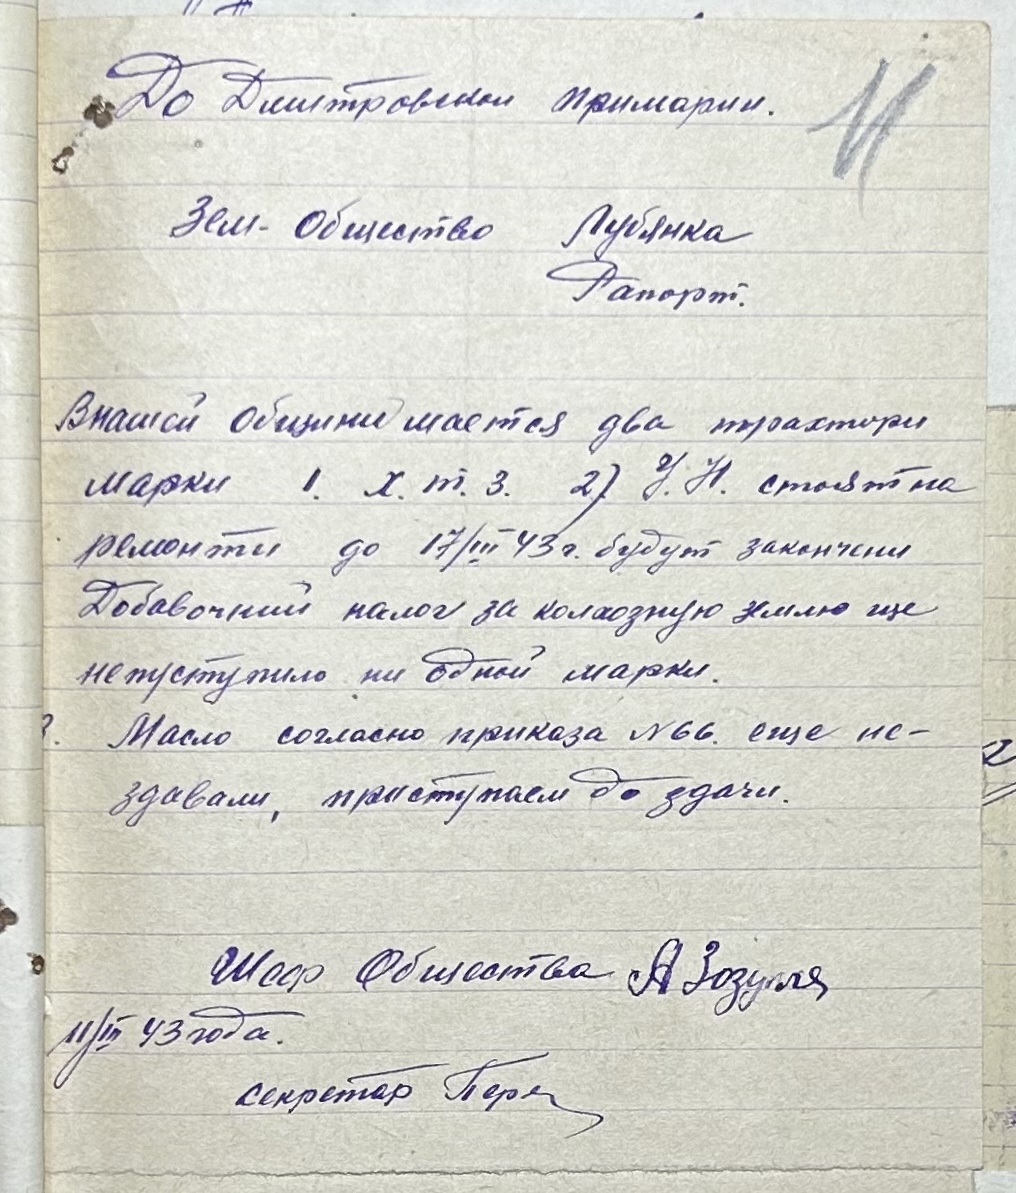 До Дмитровской примарии.
11
Зем- Общество Лубянка
Рапорт.
Внашей Общини имается два трахтори
марки 1. Х.т.З. 2) У.Н. стоят на
ремонти до 17/III 43 г. будут закончени
Добавочний налог за колхозную землю ище
непуступило ни одной марки.
3. Масло согласно приказа №66. еще не-
здавали, приступаем до здачи.
Шеф Общества А Зозуля
11/III 43 года.
секретар